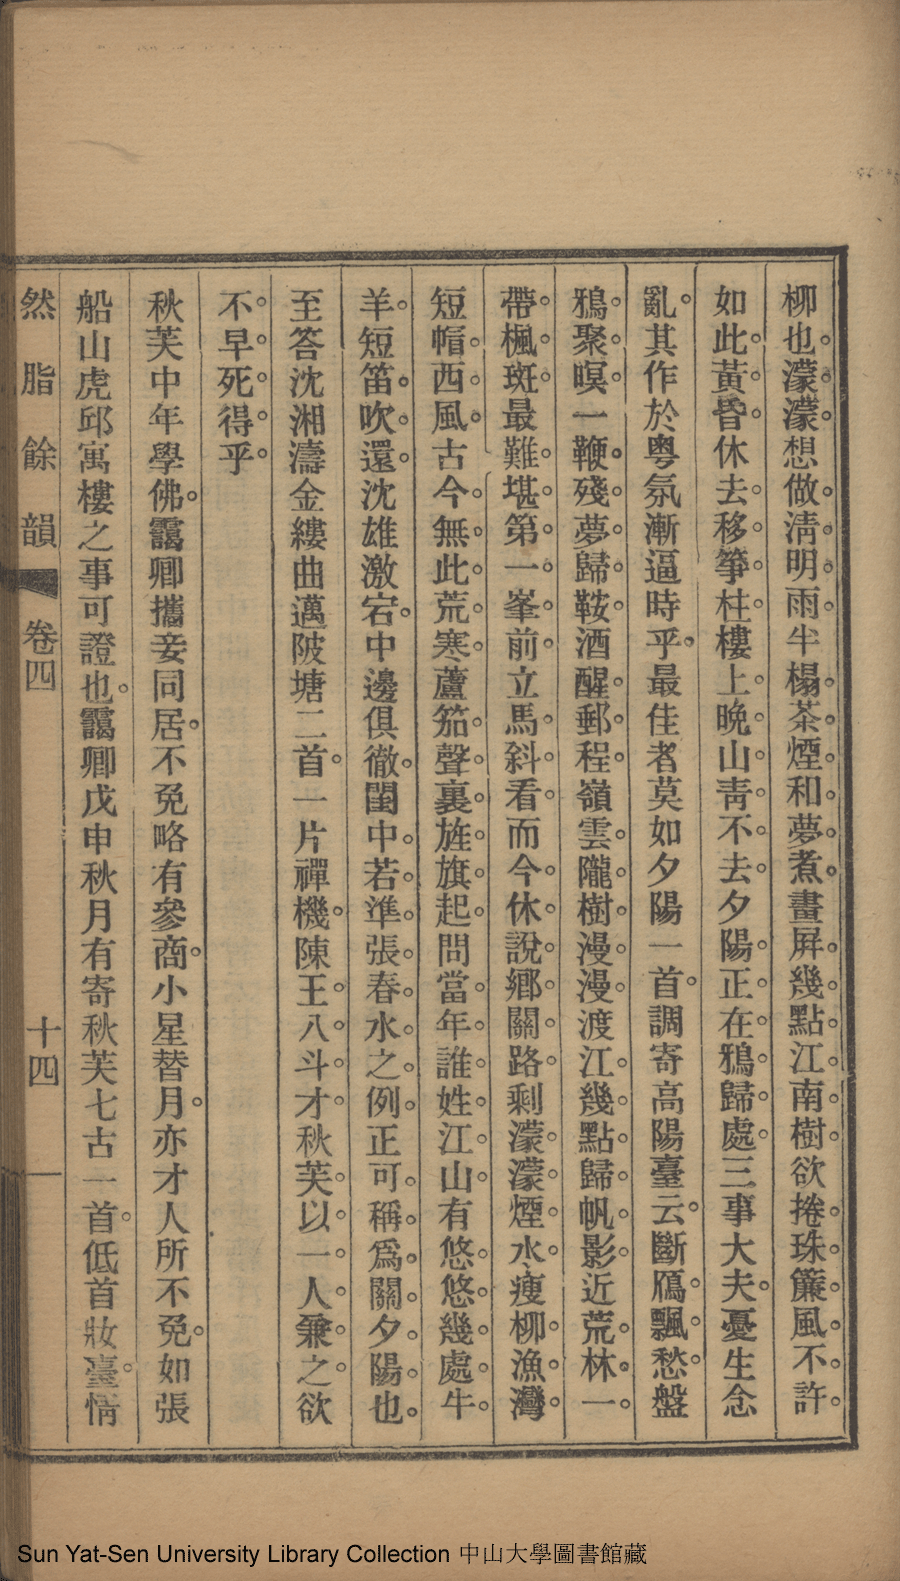 柳也濛濛想做淸明雨半榻茶煙和夢煮畫屛幾點江南樹欲捲珠簾風不許
如此黃昏休去移箏柱樓上晚山靑不去夕陽正在鴉歸處三事大夫憂生念
亂其作於粵氛漸逼時乎最佳者莫如夕陽一首調寄高陽臺云斷鴈飄愁盤
鴉聚暝一鞭殘夢歸鞍酒醒郵程嶺雲隴樹漫漫渡江幾點歸帆影近荒林一
帶楓斑最難堪第一峯前立馬斜看而今休說鄉關路剩濛濛煙水瘦柳漁灣
短帽西風古今無此荒寒蘆笳聲裏旌旗起問當年誰姓江山有悠悠幾處牛
羊短笛吹還沈雄激宕中邊俱徹閨中若準張春水之例正可稱爲關夕陽也
至答沈湘濤金縷曲邁陂塘二首一片禪機陳王八斗才秋芙以一人兼之欲
不早死得乎
秋芙中年學佛靄卿攜妾同居不免略有參商小星替月亦才人所不免如張
船山虎邱寓樓之事可證也靄卿戊申秋月有寄秋芙七古一首低首妝臺情
然脂餘韻 卷四 十四
Sun Yat-Sen University Library Collection 中山大學圖書館藏